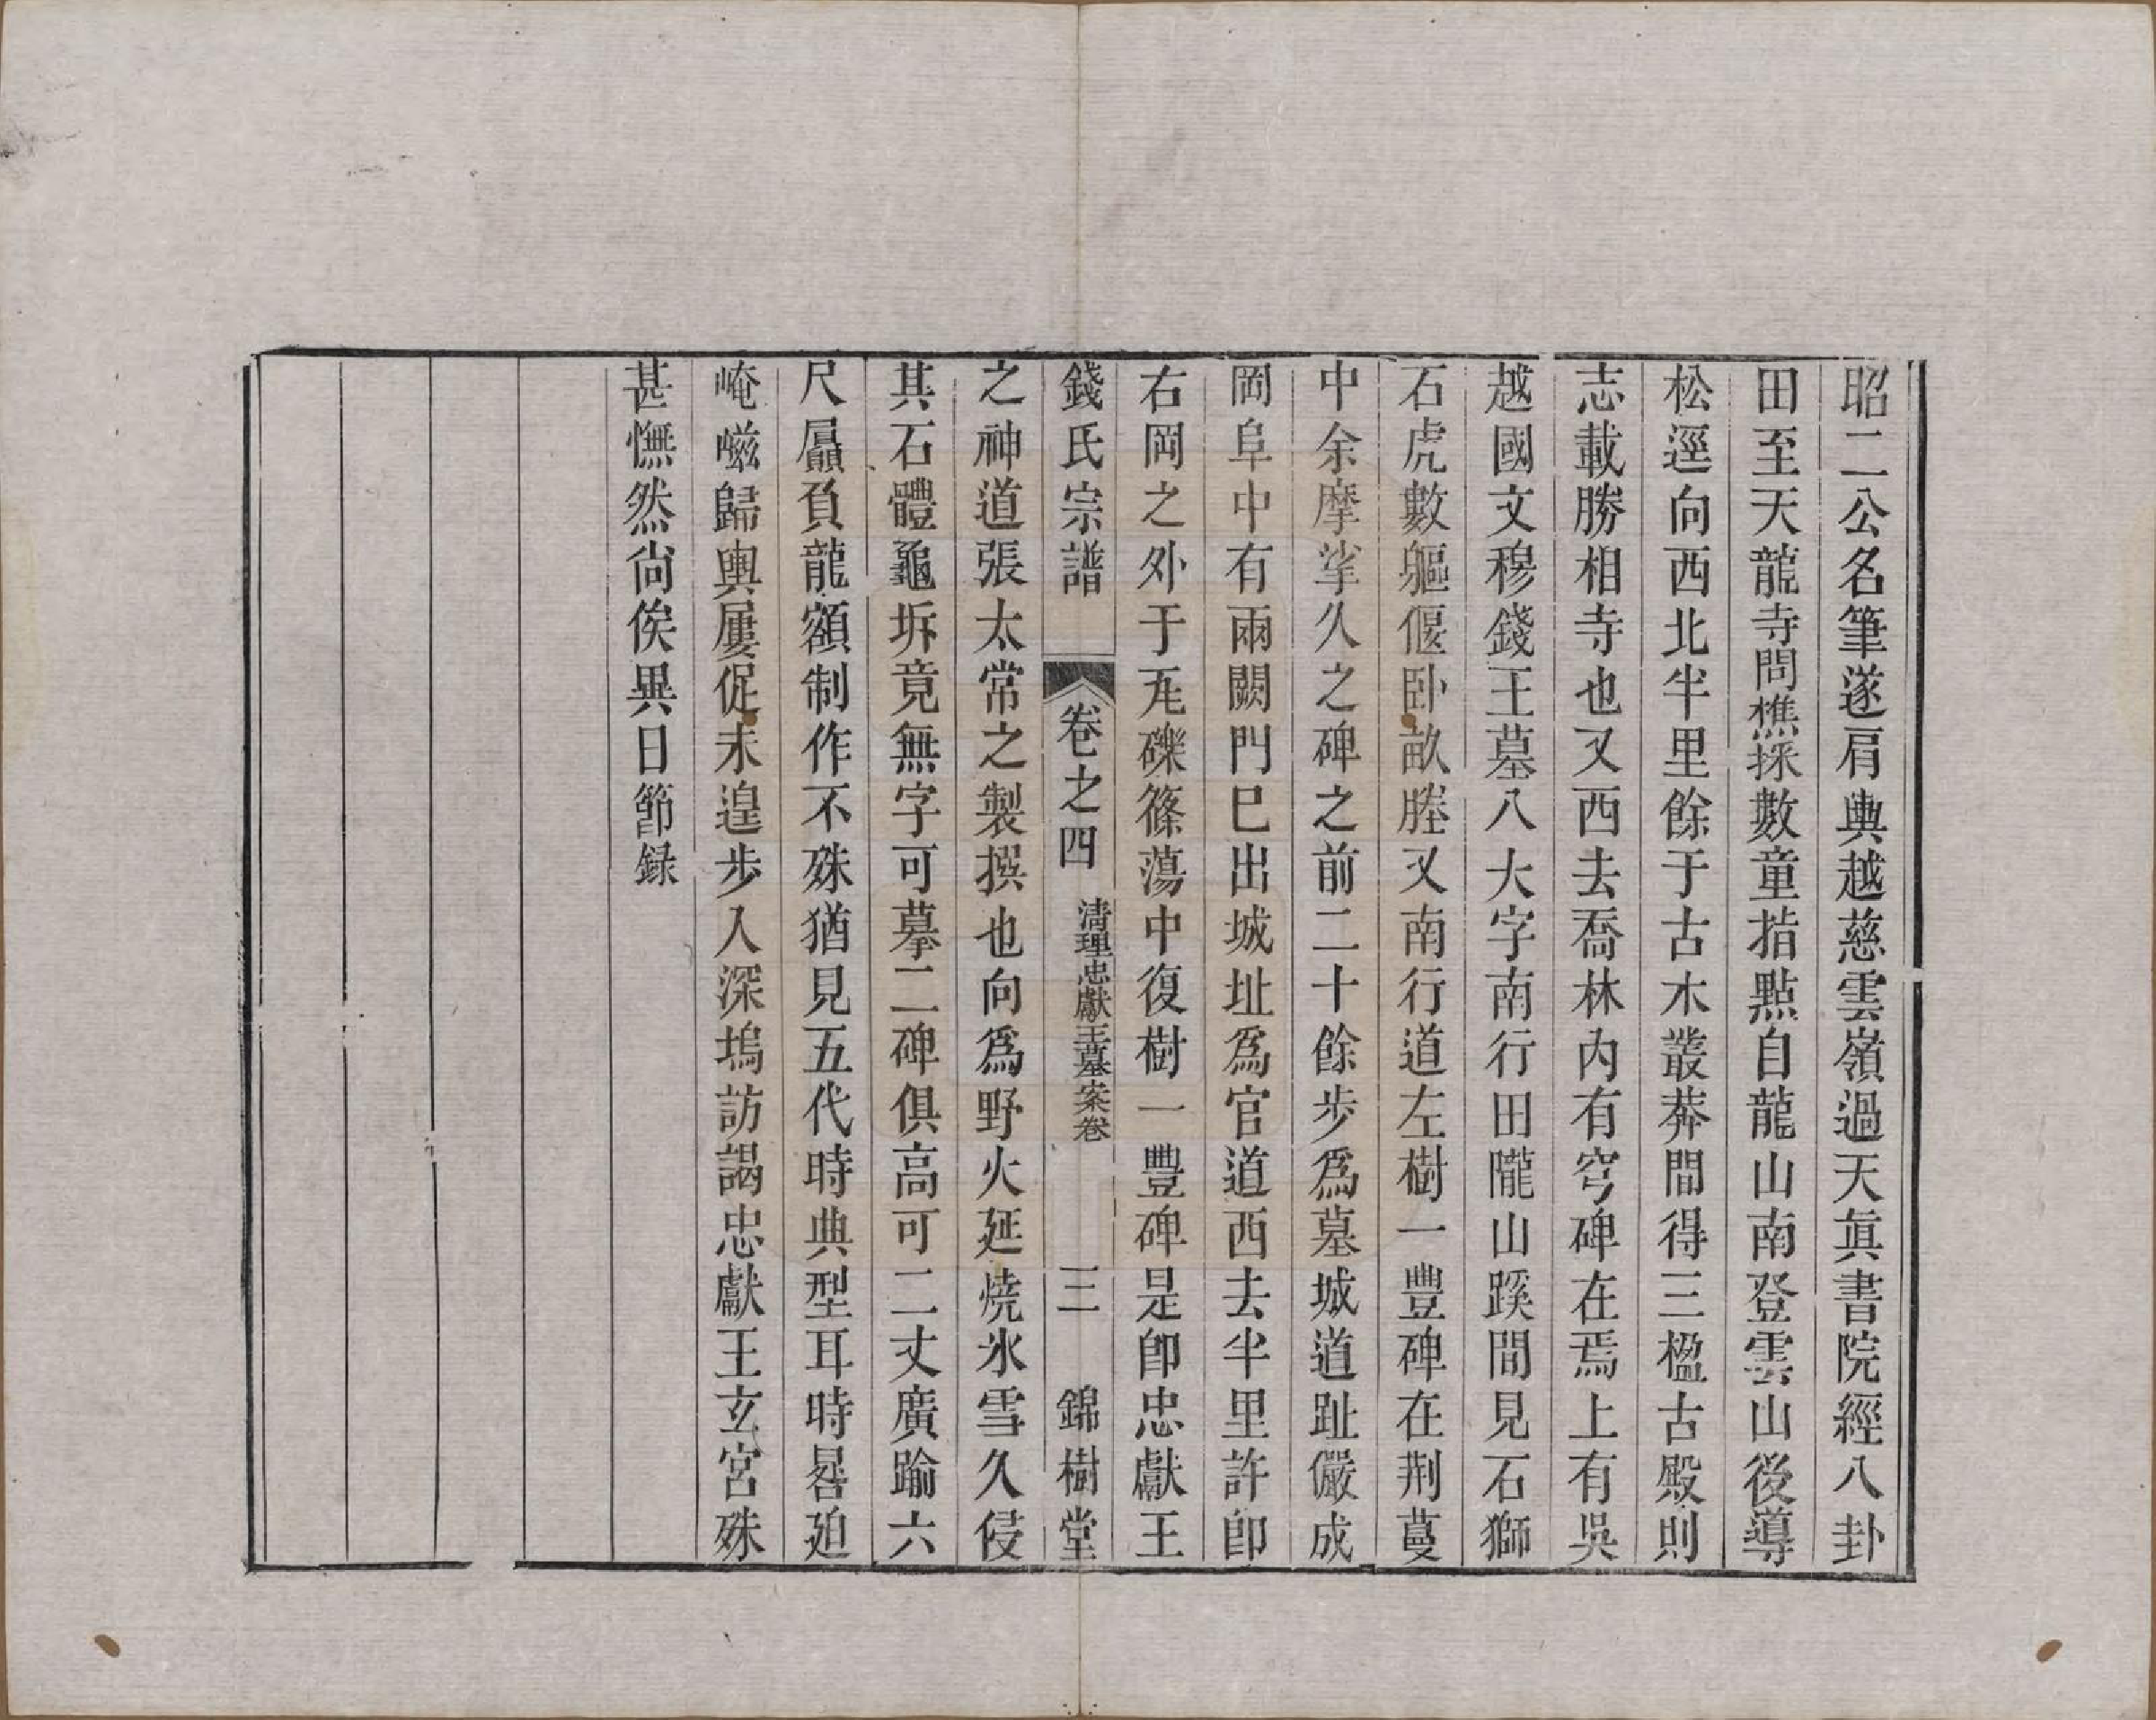 昭二公名筆遂肩輿越慈雲嶺過天眞書院經八卦
田至天龍寺問樵採數童指點自龍山南登雲山後導
松逕向西北半里餘于古木叢莽間得三楹古殿則
志載勝相寺也又西去喬林內有穹碑在焉上有吳
越國文穆錢王墓八大字南行田隴山蹊間見石獅
石虎數軀偃卧畝塍又南行道左樹一豐碑在荆蔓
中余摩挲久之碑之前二十餘步爲墓城道趾儼成
岡阜中有兩闕門巳出城址爲官道西去半里許卽
右岡之外于瓦礫篠蕩中復樹一豐碑是卽忠獻王
錢氏宗譜 卷之四 清理忠獻王墓案卷 三 錦樹堂
之神道張太常之製撰也向爲野火延燒氷雪久侵
其石體龜坼竟無字可摹二碑俱高可二丈廣踰六
尺贔負龍額制作不殊猶見五代時典型耳時晷廹
崦嵫歸輿屢促未遑步入深塢訪謁忠獻王玄宮殊
甚憮然尙俟異日節録